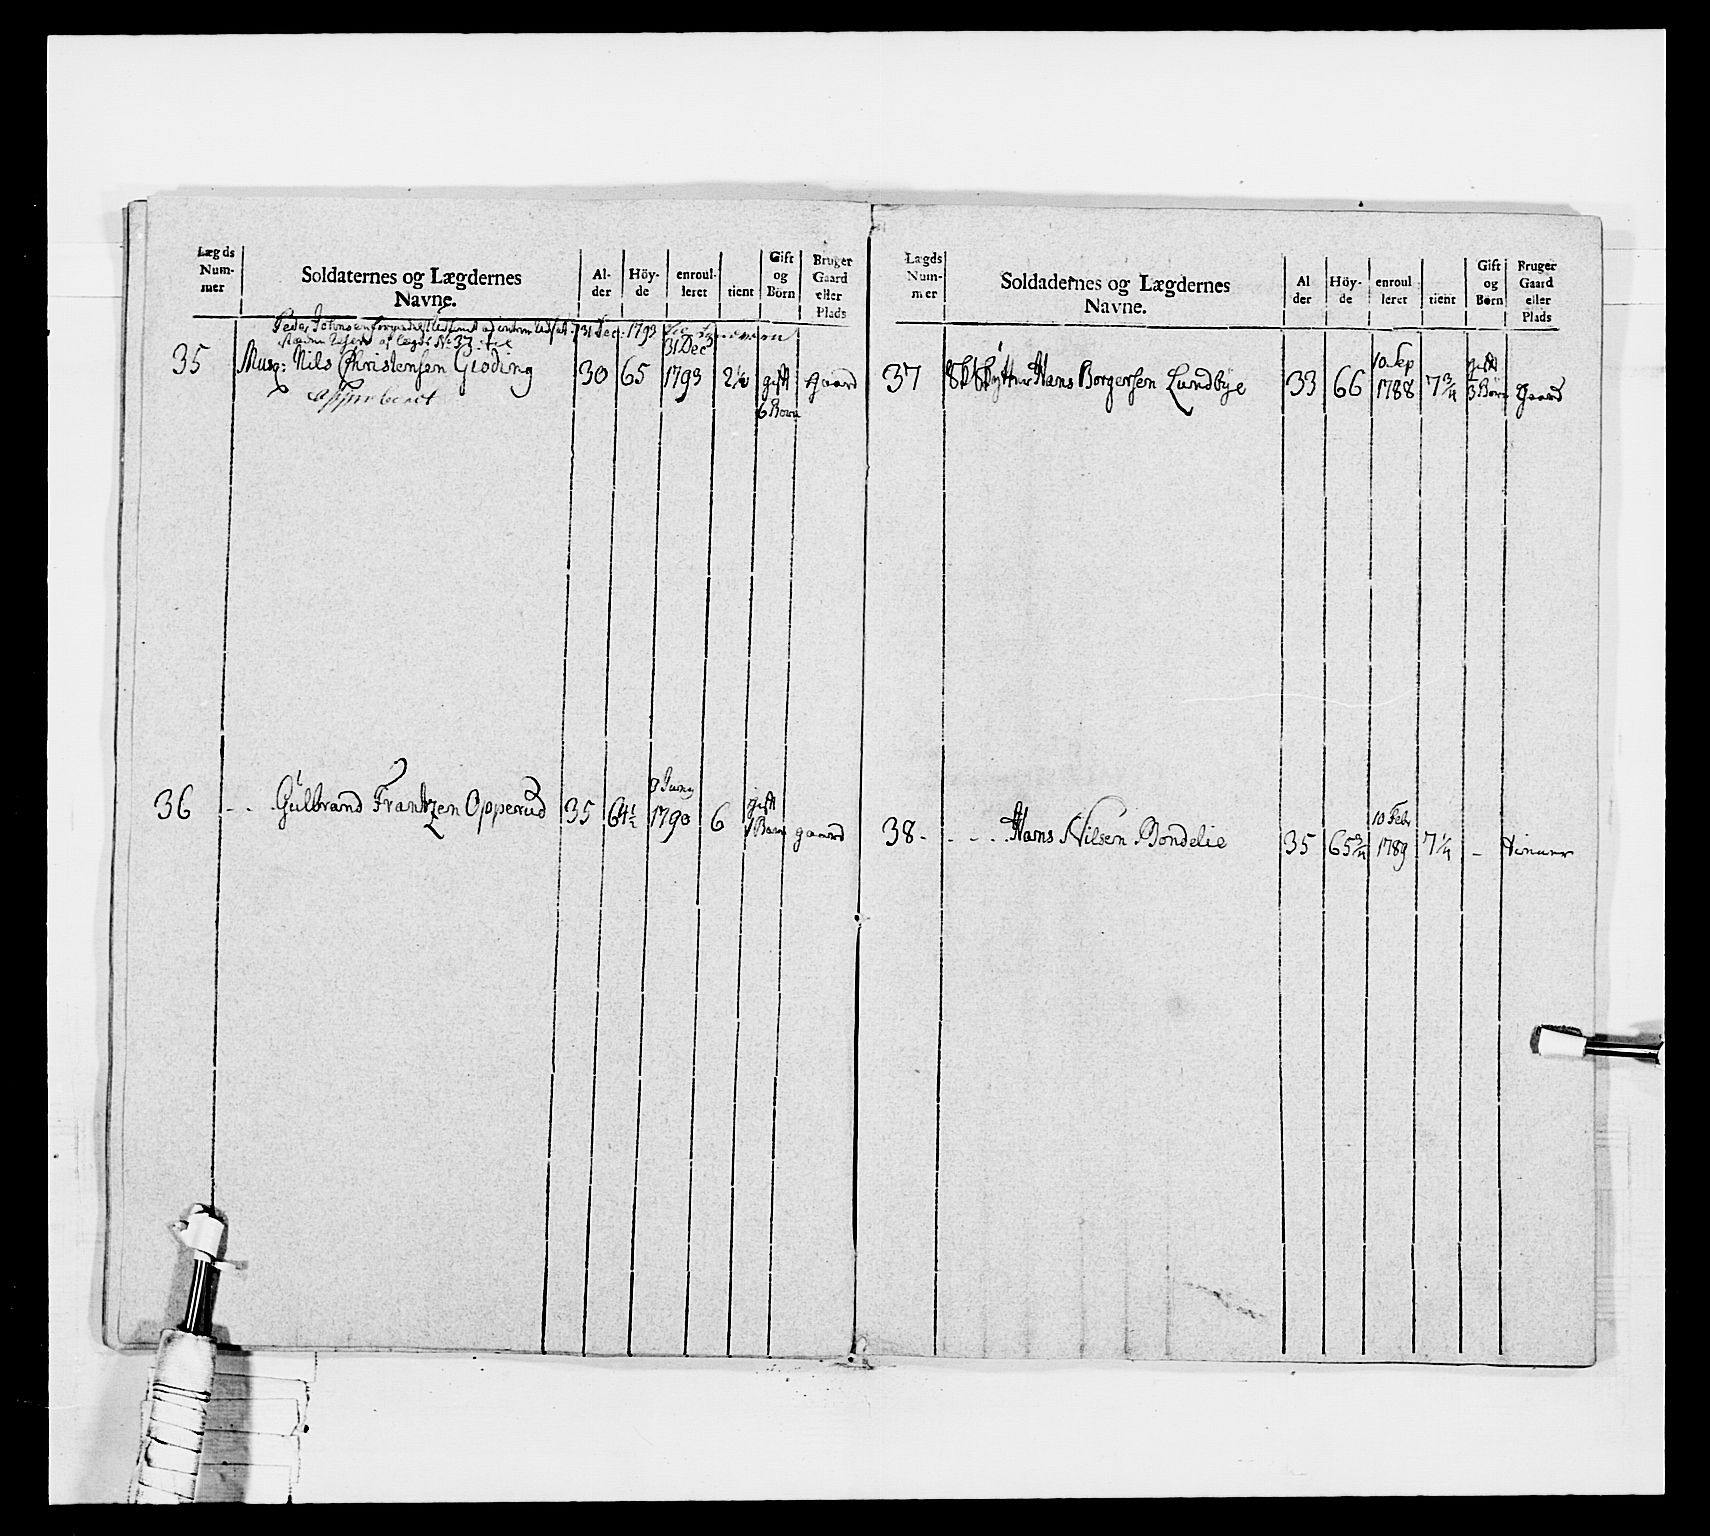 Lægds Num-mer | Soldaternes og Lægdernes Navne. | Al-der | Höy-de | enroul-leret | tient | Gift og Börn | Bruger Gaard eller Plads
Peder Johnsen 31 Dec: 1793
af Lægd No 37
35 Musq: Nils Christensen Gloding 30 65 31 Dec 1793 2½ gift 6 Börn Gaard
36 - - Gulbrand Frantzen Opperud 35 64½ 3 Juny 1790 6 gift 1 Barn gaard
Lægds Num-mer | Soldadernes og Lægdernes Navne. | Al der | Höy-de | enroul leret | tient | Gift og Börn | Bruger Gaard eller Plads
37 Hans Borgersen Lundbye 33 66 10 Sep 1788 7¾ gift 3 Börn Gaard
38 - - - - Hans Nilsen Bondelie 35 65¾ 10 Febr 1789 7¼ -